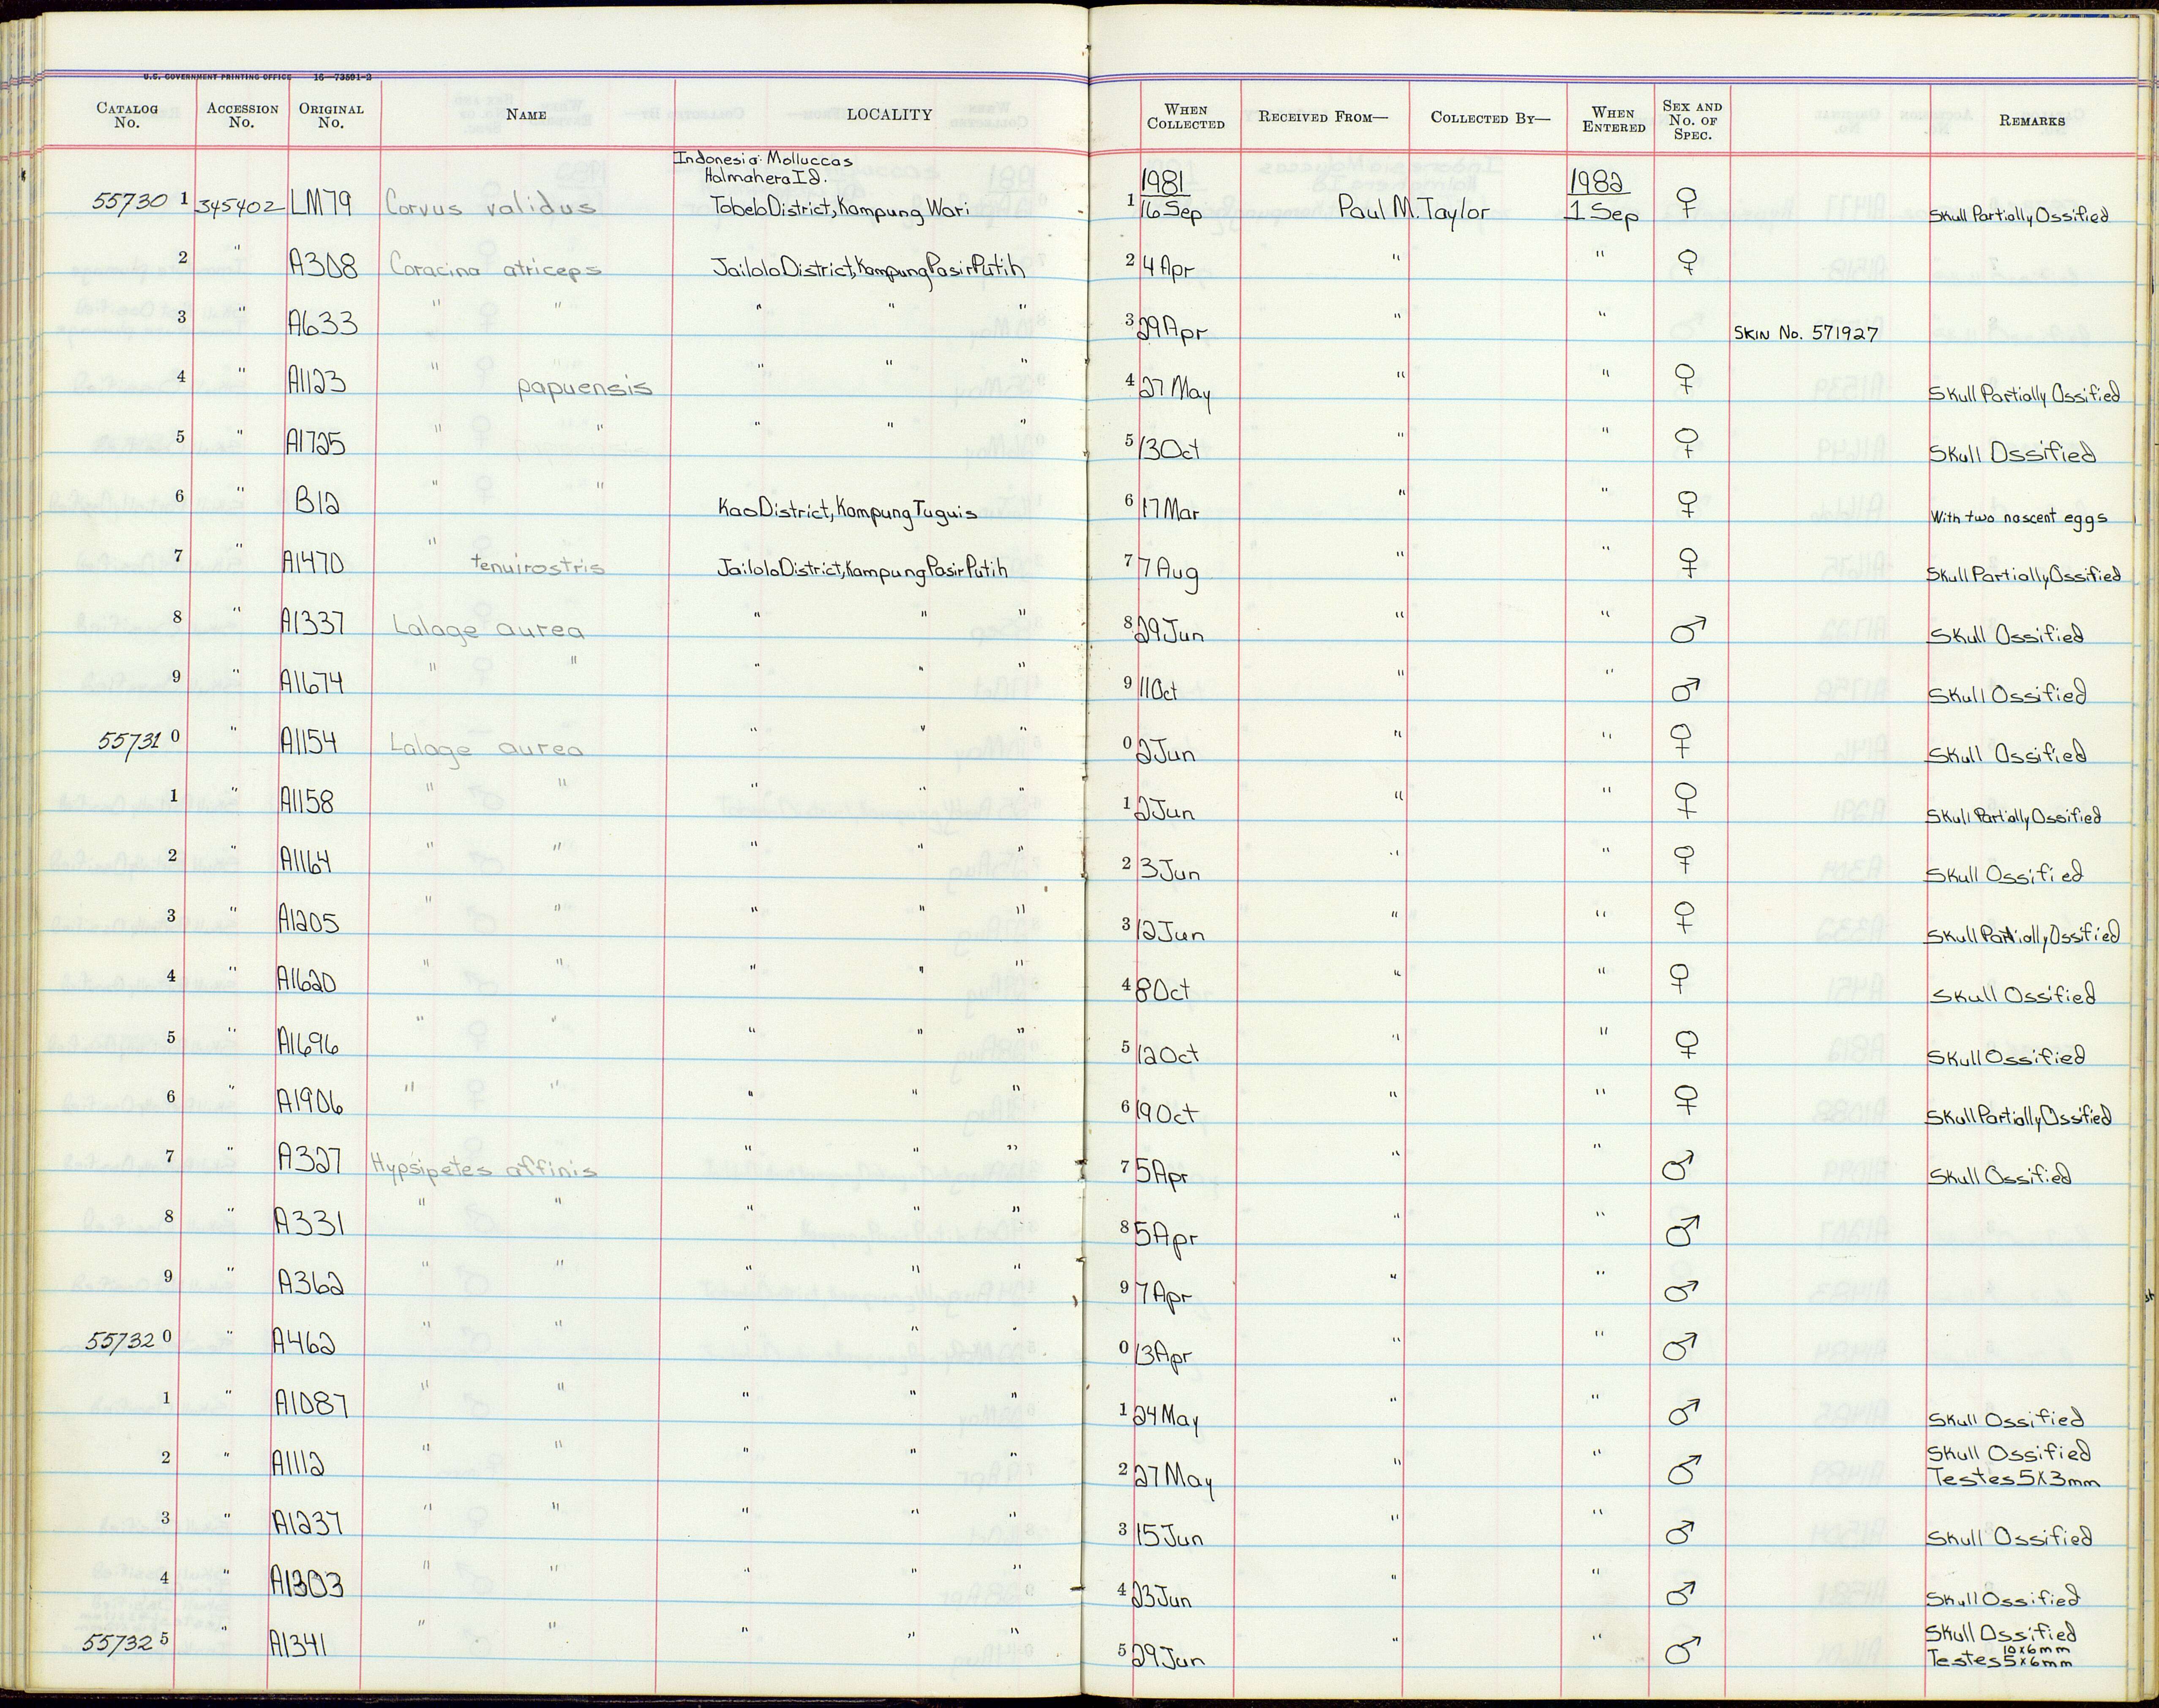 U.S. GOVERNMENT PRINTING OFFICE 16—73591-2
CATALOG No. ACCESSION No. ORIGINAL No. NAME LOCALITY WHEN COLLECTED RECEIVED FROM— COLLECTED BY— WHEN ENTERED SEX AND No. OF SPEC. REMARKS
Indonesia: Molluccas
Halmahera Id. 1981 1982
55730 1 345402 LM79 Corvus validus Tobelo District, Kampung Wari 1 16 Sep Paul M. Taylor 1 Sep ♀ Skull Partially Ossified
2 " A308 Coracina atriceps Jailolo District, Kampung Pasir Putih 2 4 Apr " " ♀
3 " A633 " " " " " 3 29 Apr " " SKIN No. 571927
4 " A1123 " papuensis " " " 4 27 May " " ♀ Skull Partially Ossified
5 " A1725 " " " " " 5 13 Oct " " ♀ Skull Ossified
6 " B12 " " Kao District, Kampung Tuguis 6 17 Mar " " ♀ With two nascent eggs
7 " A1470 " tenuirostris Jailolo District, Kampung Pasir Putih 7 7 Aug " " ♀ Skull Partially Ossified
8 " A1337 Lalage aurea " " " 8 29 Jun " " ♂ Skull Ossified
9 " A1674 " " " " " 9 11 Oct " " ♂ Skull Ossified
55731 0 " A1154 Lalage aurea " " " 0 2 Jun " " ♀ Skull Ossified
1 " A1158 " " " " " 1 2 Jun " " ♀ Skull Partially Ossified
2 " A1164 " " " " " 2 3 Jun " " ♀ Skull Ossified
3 " A1205 " " " " " 3 12 Jun " " ♀ Skull Partially Ossified
4 " A1620 " " " " " 4 8 Oct " " ♀ Skull Ossified
5 " A1696 " " " " " 5 12 Oct " " ♀ Skull Ossified
6 " A1906 " " " " " 6 19 Oct " " ♀ Skull Partially Ossified
7 " A327 Hypsipetes affinis " " " 7 5 Apr " " ♂ Skull Ossified
8 " A331 " " " " " 8 5 Apr " " ♂
9 " A362 " " " " " 9 7 Apr " " ♂
55732 0 " A462 " " " " " 0 13 Apr " " ♂
1 " A1087 " " " " " 1 24 May " " ♂ Skull Ossified
2 " A1112 " " " " " 2 27 May " " ♂ Skull Ossified
Testes 5X3mm
3 " A1237 " " " " " 3 15 Jun " " ♂ Skull Ossified
4 " A1303 " " " " " 4 23 Jun " " ♂ Skull Ossified
55732 5 " A1341 " " " " " 5 29 Jun " " ♂ Skull Ossified
10x6mm
Testes 5x6mm